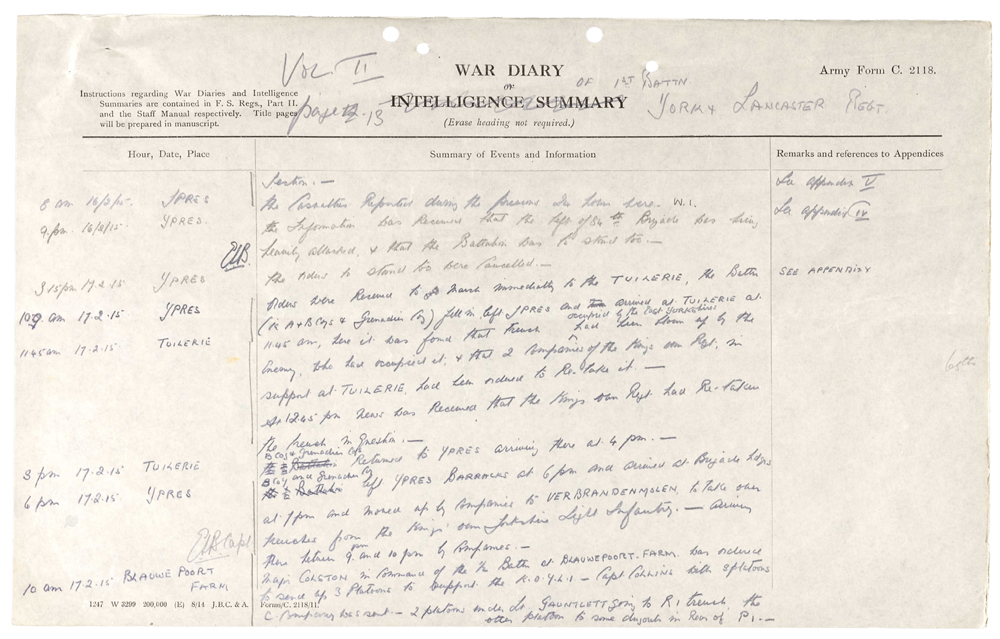 VOL. II
WAR DIARY
Army Form C. 2118.
Instructions regarding War Diaries and Intelligence
Summaries are contained in F. S. Regs., Part II.
and the Staff Manual respectively. Title pages
will be prepared in manuscript.
or
OF 1ST BATTN
INTELLIGENCE SUMMARY
YORK & LANCASTER REGT.
page 13
(Erase heading not required.)
Hour, Date, Place
Summary of Events and Information
Remarks and references to Appendices
Section. —
See appendix V
8 am 16/2/15. YPRES
the Casualties Reported during the previous 24 hours were. W. 1.
See appendix IV
9 pm. 16/2/15. YPRES.
the Information was Received that the left of 84th Brigade was being
heavily attacked, & that the Battalion was to stand too. —
EWB.
the orders to stand too were Cancelled. —
3.15pm 17.2.15 YPRES
SEE APPENDIX
Orders were Received to march immediately to the TUILERIE, the Battn
am 17.2.15 YPRES
A & B Coys & Grenadier Coy) fell in, left YPRES and arrived at TUILERIE at
occupied by the East Yorkshires
11.45 am 17.2.15. TUILERIE
11.45 am, here it was found that trench had been blown up by the
Enemy, who had occupied it, & that 2 Companies of the Kings own Regt, in
support at TUILERIE, had been ordered to Re-take it. —
At 12.45 pm news was Received that the Kings own Regt had Re-taken
the trench in Question. —
B Coy & Grenadier Coy
3 pm 17.2.15 TUILERIE
Returned to YPRES arriving there at 4 pm. —
B Coy and Grenadier Coy
6 pm 17.2.15 YPRES
left YPRES BARRACKS at 6 pm and arrived at Brigade Hdqrs
at 7pm and moved up by Companies to VERBRANDENMOLEN, to take over
trenches from the Kings' own Yorkshire Light Infantry. — arriving
EWB Capt
there between 9 pm and 10 pm by Companies. —
10 am 17.2.15 BLAUWE POORT
FARM
Major COLSTON in Command of the ½ Battn at BLAUWEPOORT FARM. was ordered
to send up 3 Platoons to support the K.O.Y.L.I — Capt COBBING with 3 platoons
C. Company was sent — 2 platoons under Lt. GAUNTLETT going to R1 trench, the
other platoon to some dugouts in Rear of P1. —
1247 W 3299 200,000 (E) 8/14 J.B.C. & A. Forms/C. 2118/11.